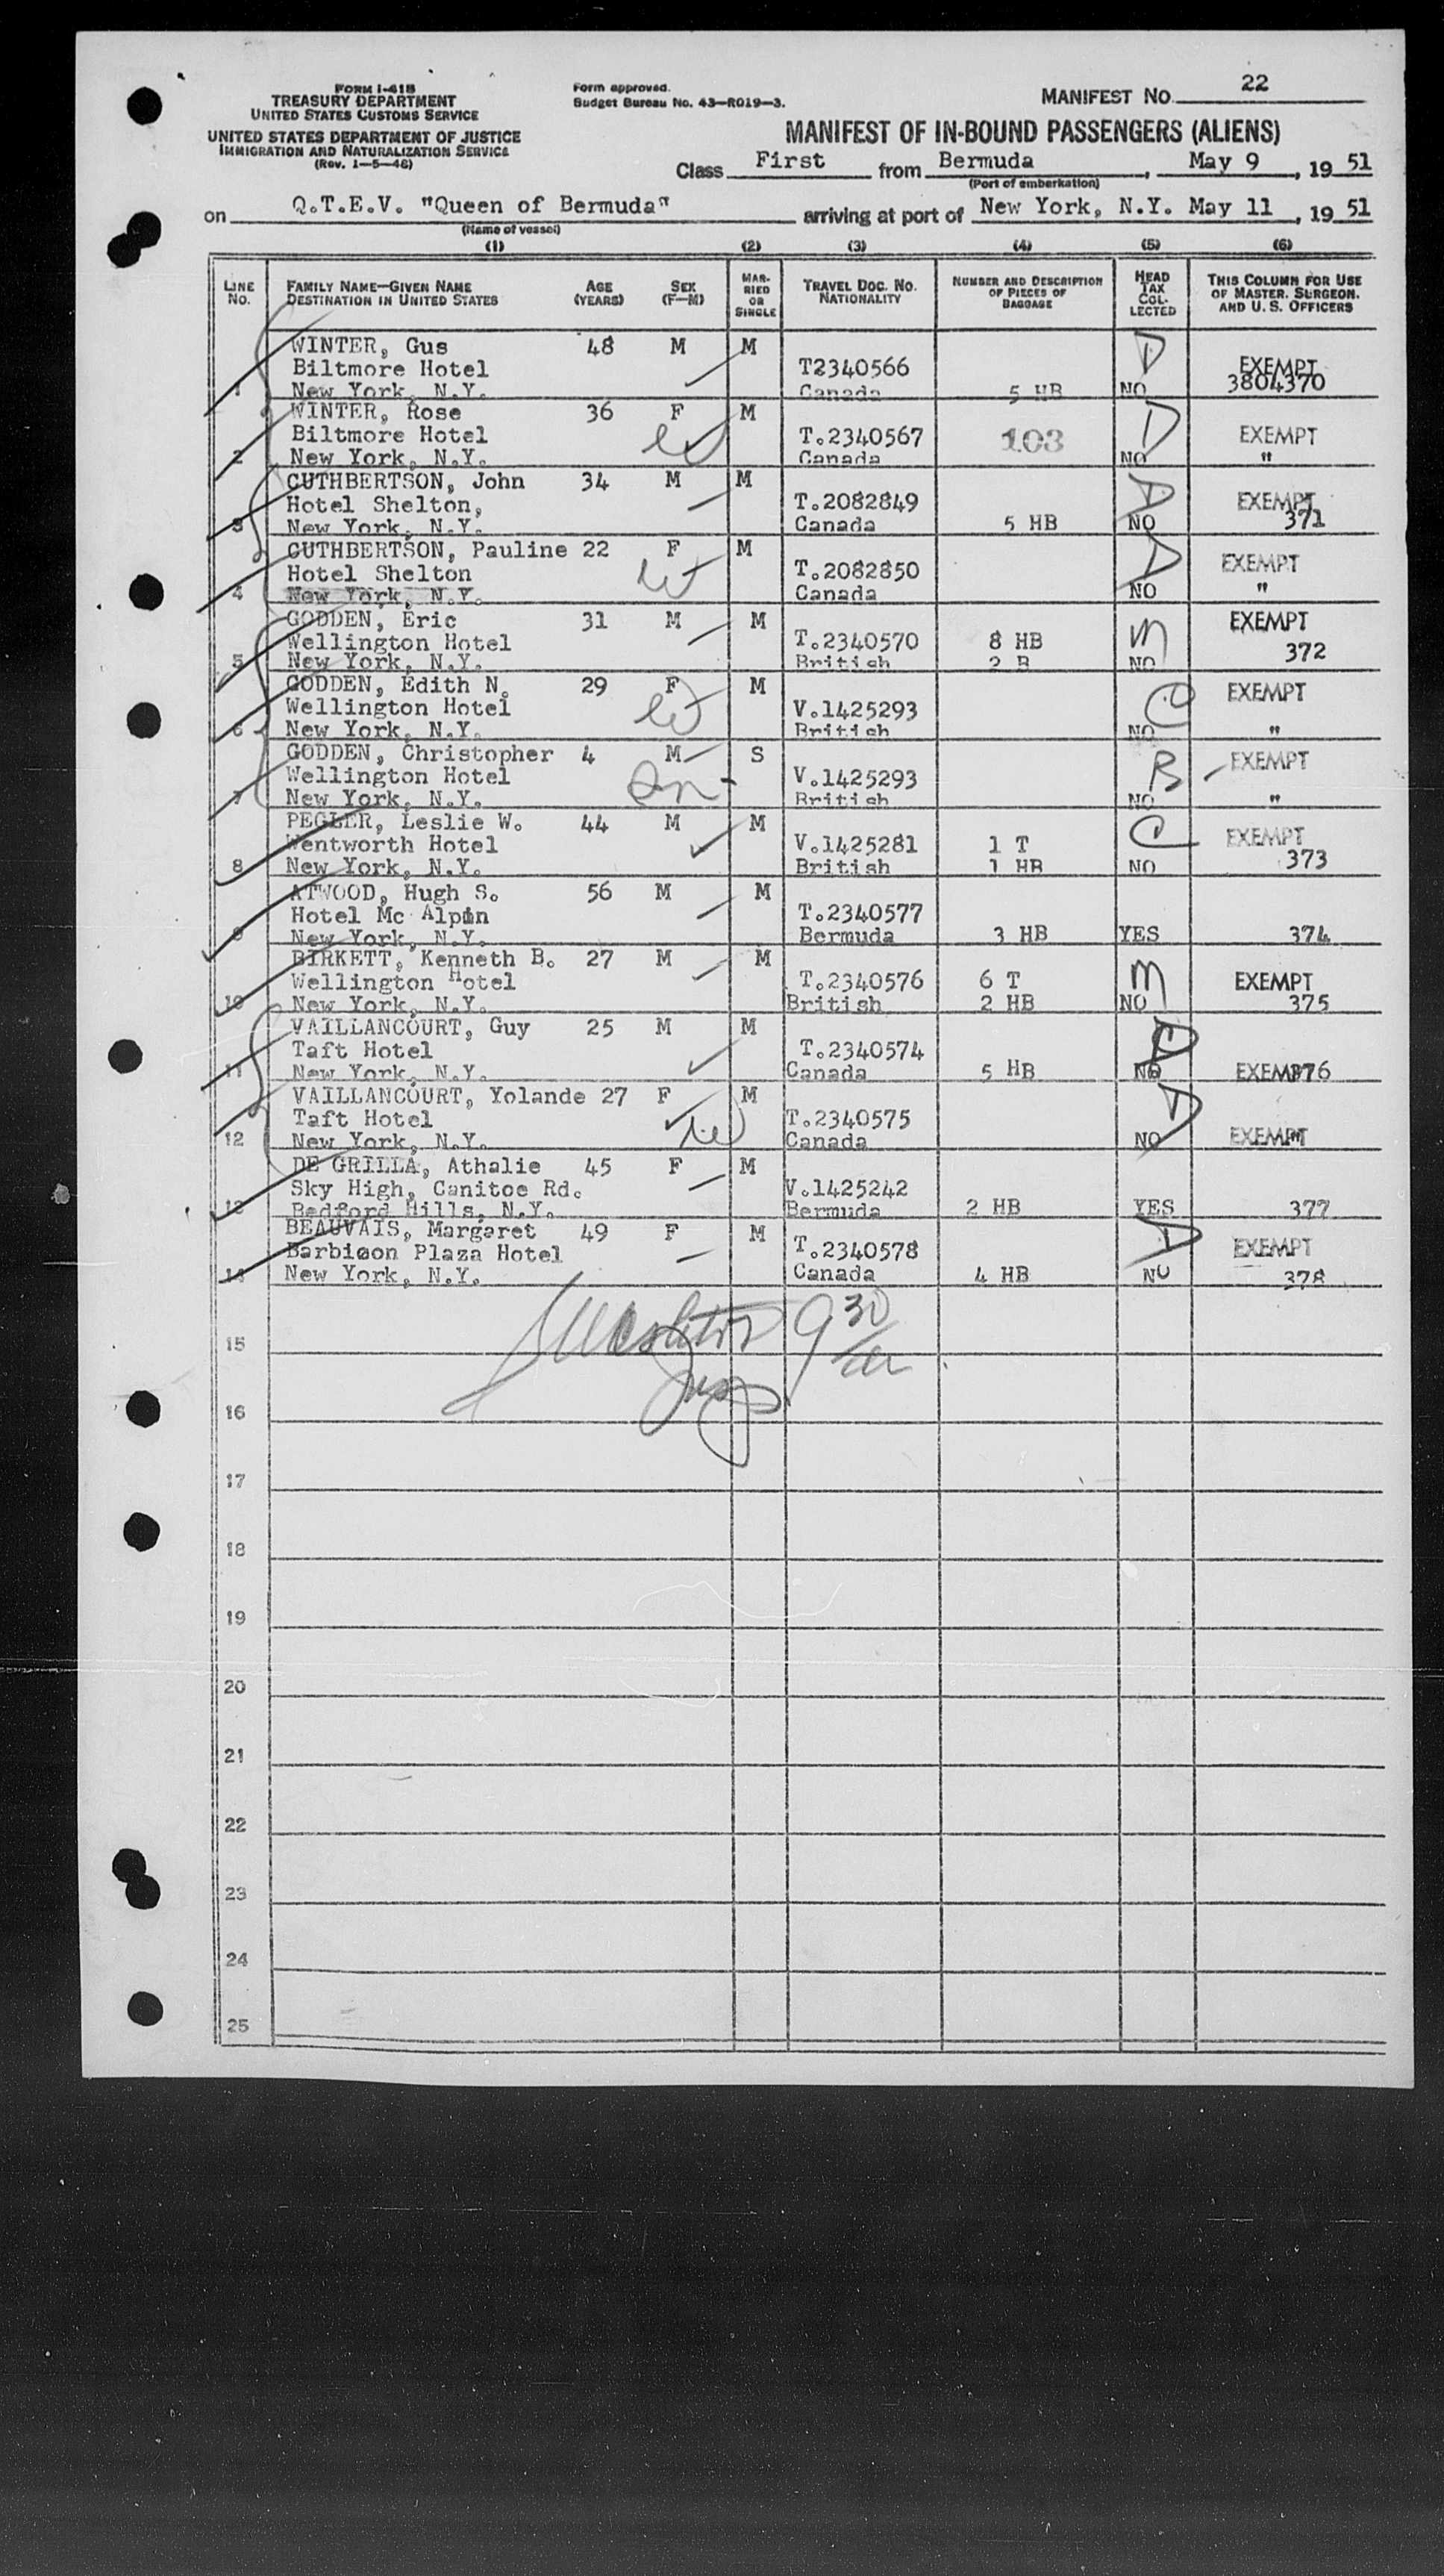 FORM I-418
TREASURY DEPARTMENT
UNITED STATES CUSTOMS SERVICE
UNITED STATES DEPARTMENT OF JUSTICE
IMMIGRATION AND NATURALIZATION SERVICE
(Rev. 1—5—48)
Form approved.
Budget Bureau No. 43—R019—3.
MANIFEST NO. 22
MANIFEST OF IN-BOUND PASSENGERS (ALIENS)
Class First from Bermuda, May 9, 1951
(Port of embarkation)
on Q.T.E.V. "Queen of Bermuda" arriving at port of New York, N.Y. May 11, 1951
(Name of vessel)
(1) (2) (3) (4) (5) (6)
LINE NO. FAMILY NAME—GIVEN NAME DESTINATION IN UNITED STATES AGE (YEARS) SEX (F—M) MARRIED OR SINGLE TRAVEL DOC. NO. NATIONALITY NUMBER AND DESCRIPTION OF PIECES OF BAGGAGE HEAD TAX COLLECTED THIS COLUMN FOR USE OF MASTER, SURGEON, AND U. S. OFFICERS
WINTER, Gus 48 M M D
Biltmore Hotel T2340566 EXEMPT
1 New York, N.Y. Canada 5 HB NO 3804370
WINTER, Rose 36 F M D
Biltmore Hotel T.2340567 103 EXEMPT
2 New York, N.Y. Canada NO "
CUTHBERTSON, John 34 M M D
Hotel Shelton, T.2082849 EXEMPT
3 New York, N.Y. Canada 5 HB NO 371
CUTHBERTSON, Pauline 22 F M D
Hotel Shelton T.2082850 EXEMPT
4 New York, N.Y. Canada NO "
GODDEN, Eric 31 M M EXEMPT
Wellington Hotel T.2340570 8 HB M 372
5 New York, N.Y. British 2 B NO
GODDEN, Edith N. 29 F M C EXEMPT
Wellington Hotel V.1425293
6 New York, N.Y. British NO "
GODDEN, Christopher 4 M S
Wellington Hotel V.1425293 B EXEMPT
7 New York, N.Y. British NO "
PEGLER, Leslie W. 44 M M C
Wentworth Hotel V.1425281 1 T EXEMPT
8 New York, N.Y. British 1 HB NO 373
ATWOOD, Hugh S. 56 M M
Hotel Mc Alpin T.2340577
9 New York, N.Y. Bermuda 3 HB YES 374
BIRKETT, Kenneth B. 27 M M
Wellington Hotel T.2340576 6 T M EXEMPT
10 New York, N.Y. British 2 HB NO 375
VAILLANCOURT, Guy 25 M M
Taft Hotel T.2340574 D
11 New York, N.Y. Canada 5 HB NO EXEMPT 376
VAILLANCOURT, Yolande 27 F M D
Taft Hotel T.2340575
12 New York, N.Y. Canada NO EXEMPT "
DE GRILLA, Athalie 45 F M
Sky High, Canitoe Rd. V.1425242
13 Bedford Hills, N.Y. Bermuda 2 HB YES 377
BEAUVAIS, Margaret 49 F M D
Barbizon Plaza Hotel T.2340578 EXEMPT
14 New York, N.Y. Canada 4 HB NO 378
9 30
15
16
17
18
19
20
21
22
23
24
25